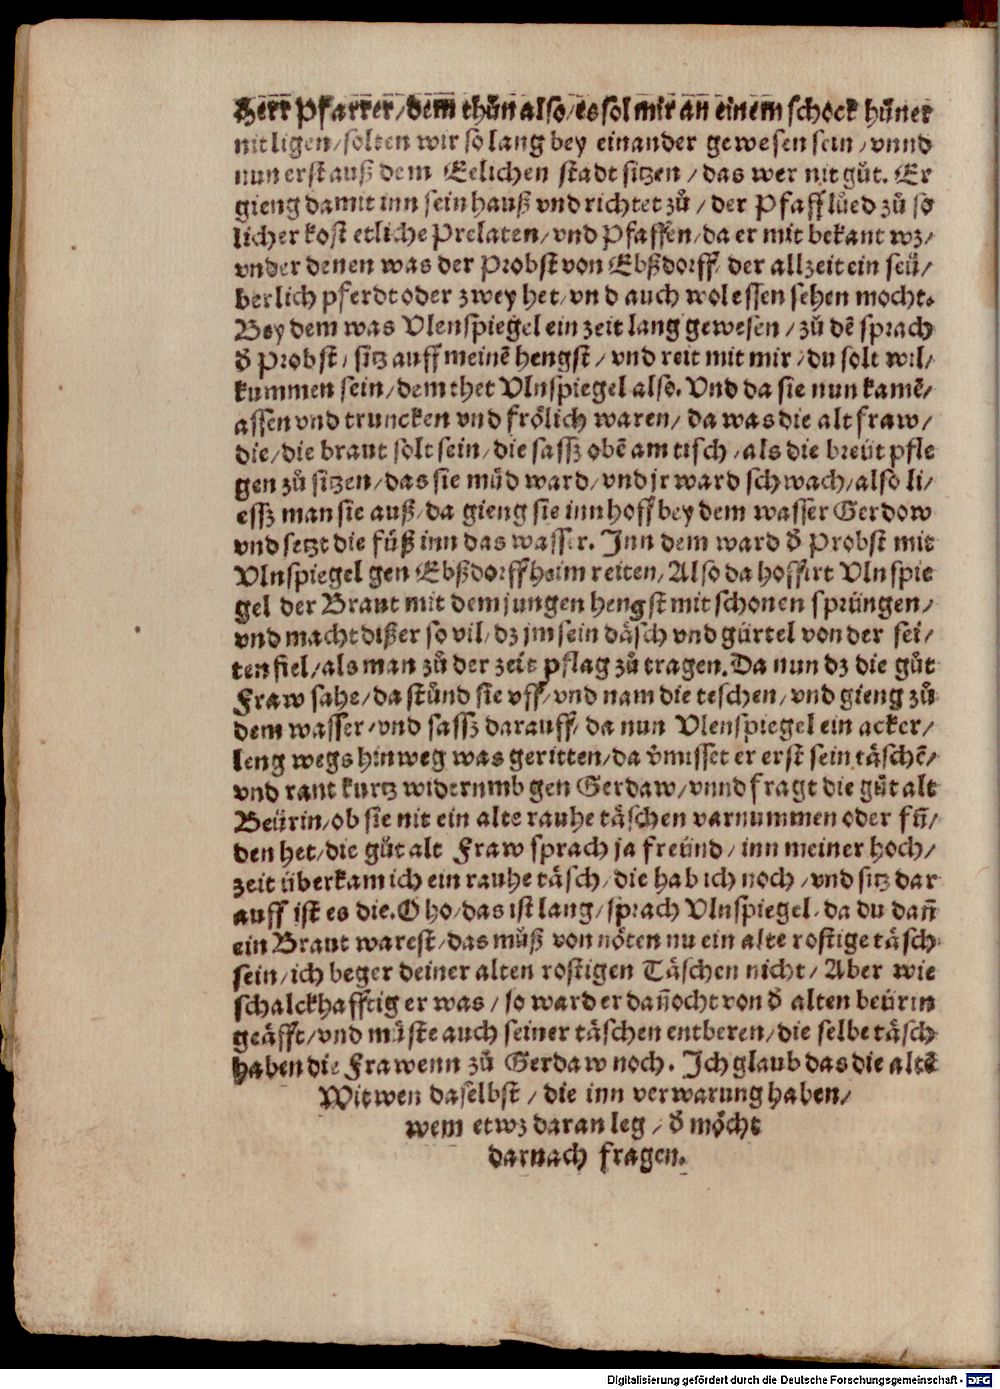 Herr Pfarrer/dem thůn also/es sol mir an einem schock hüner
nit ligen/solten wir so lang bey einander gewesen sein/vnnd
nun erst auß dem Eelichen stadt sitzen/das wer nit gůt. Er
gieng damit inn sein hauß vnd richtet zů/der Pfaff lůed zů so
licher kost etliche Prelaten/vnd Pfaffen/da er mit bekant wz/
vnder denen was der Probst von Ebßdorff/der allzeit ein seü/
berlich pferdt oder zwey het/vnd auch wol essen sehen mocht.
Bey dem was Vlenspiegel ein zeit lang gewesen/zů dē sprach
ð Probst/sitz auff meinē hengst/vnd reit mit mir/du solt wil/
kummen sein/dem thet Vlnspiegel also. Vnd da sie nun kamē/
assen vnd truncken vnd frölich waren/da was die alt fraw/
die/die braut solt sein/die sassz obē am tisch/als die breüt pfle
gen zů sitzen/das sie můd ward/vnd jr ward schwach/also li/
essz man sie auß/da gieng sie inn hoff bey dem wasser Gerdow
vnd setzt die füß inn das wasser. Inn dem ward ð Probst mit
Vlnspiegel gen Ebßdorff heim reiten/Also da hoffirt Vlnspie
gel der Braut mit dem jungen hengst mit schonen sprüngen/
vnd macht dißer so vil/dz jm sein däsch vnd gürtel von der sei/
ten fiel/als man zů der zeit pflag zů tragen. Da nun dz die gůt
Fraw sahe/da stůnd sie vff/vnd nam die teschen/vnd gieng zů
dem wasser/vnd sassz darauff/da nun Vlenspiegel ein acker/
leng wegs hinweg was geritten/da v̄misset er erst sein täschē/
vnd rant kurtz widerumb gen Gerdaw/vnnd fragt die gůt alt
Beürin/ob sie nit ein alte rauhe täschen varnummen oder fun̄/
den het/die gůt alt Fraw sprach ja freünd/inn meiner hoch/
zeit überkam ich ein rauhe täsch/die hab ich noch/vnd sitz dar
auff ist es die. O ho/das ist lang/sprach Vlnspiegel/da du dan̄
ein Braut warest/das můß von nöten nu ein alte rostige täsch
sein/ich beger deiner alten rostigen Täschen nicht/Aber wie
schalckhafftig er was/so ward er dan̄ocht von ð alten beürin
geäfft/vnd můste auch seiner täschen entberen/die selbe täsch
haben die Frawenn zů Gerdaw noch. Ich glaub das die altē
Witwen daselbst/die inn verwarung haben/
wem etwz daran leg/ð möcht
darnach fragen.
Digitalisierung gefördert durch die Deutsche Forschungsgemeinschaft - DFG